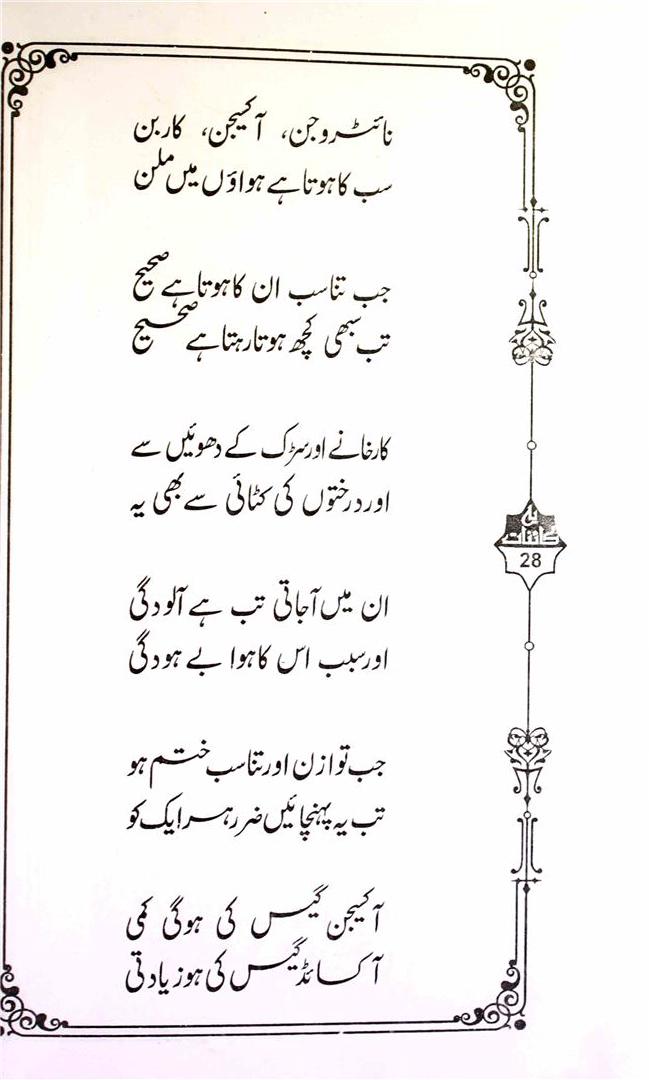 نائٹروجن، آکسیجن، کاربن
سب کا ہوتا ہے ہواؤں میں ملن
جب تناسب ان کا ہوتا ہے صحیح
تب سبھی کچھ ہوتا رہتا ہے صحیح
کارخانے اور سڑک کے دھوئیں سے
اور درختوں کی کٹائی سے بھی یہ
ان میں آجاتی تب ہے آلودگی
اور سبب اس کا ہوا بے ہودگی
جب توازن اور تناسب ختم ہو
تب یہ پہنچائیں ضرر ہر ایک کو
آکسیجن گیس کی ہوگی کمی
آکسائڈ گیس کی ہو زیادتی
کائنات
28